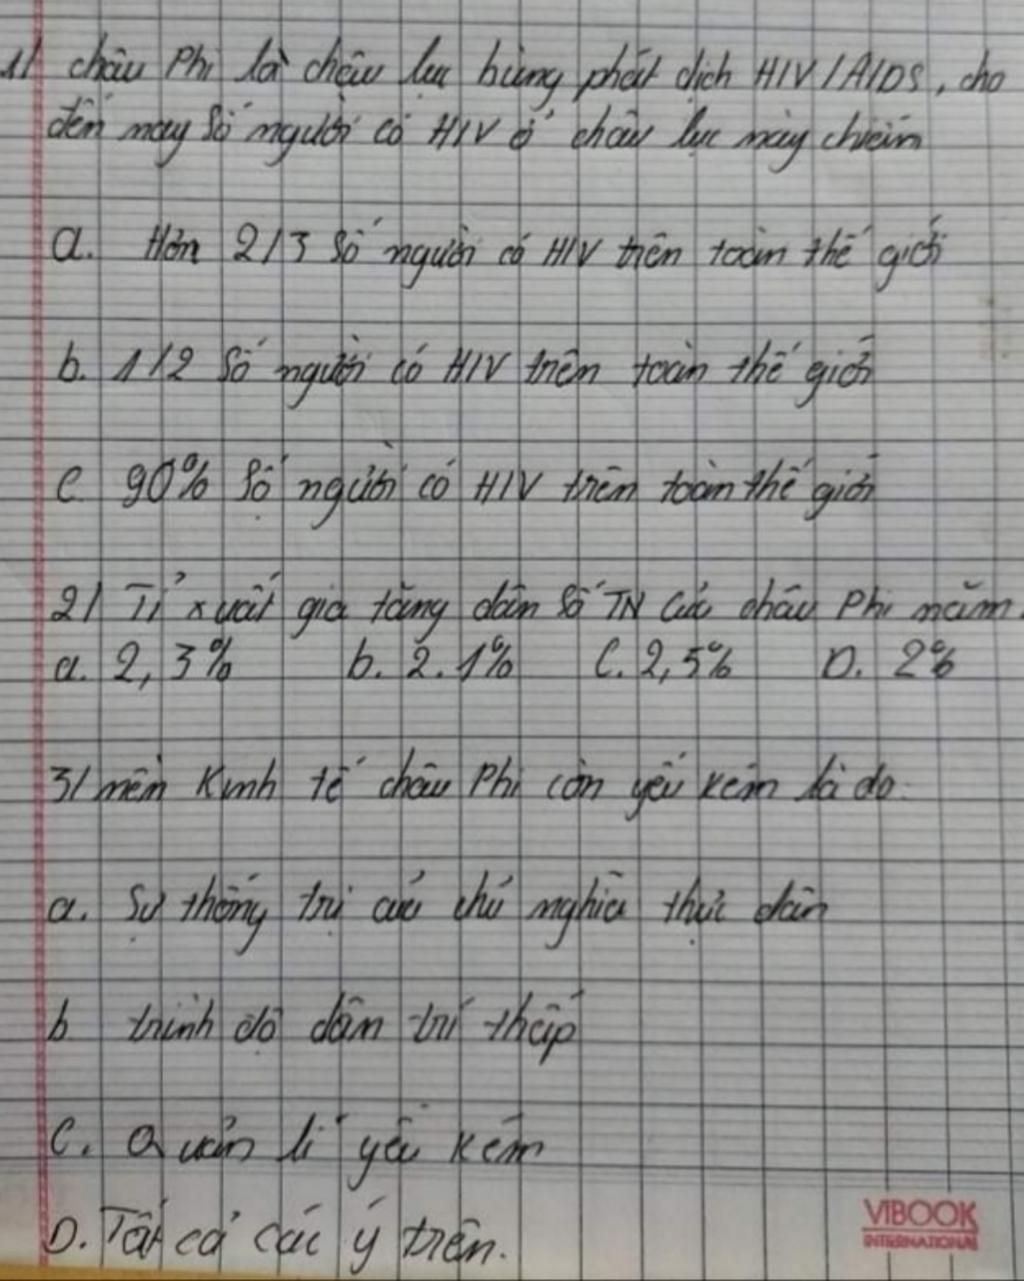 1/ châu Phi là châu lục bùng phát dịch HIV/AIDS, cho
đến nay số người có HIV ở châu lục này chiếm
a. Hơn 2/3 số người có HIV trên toàn thế giới
b. 1/2 số người có HIV trên toàn thế giới
c. 90% số người có HIV trên toàn thế giới
2/ Tỉ xuất gia tăng dân số TN của châu Phi năm.
a. 2,3% b. 2.1% C. 2,5% D. 2%
3/ nền Kinh tế châu Phi còn yếu kém là do:
a. Sự thống trị của chủ nghĩa thực dân
b trình độ dân trí thấp
C. Quản lí yếu kém
D. Tất cả các ý trên.
VIBOOK
INTERNATIONAL